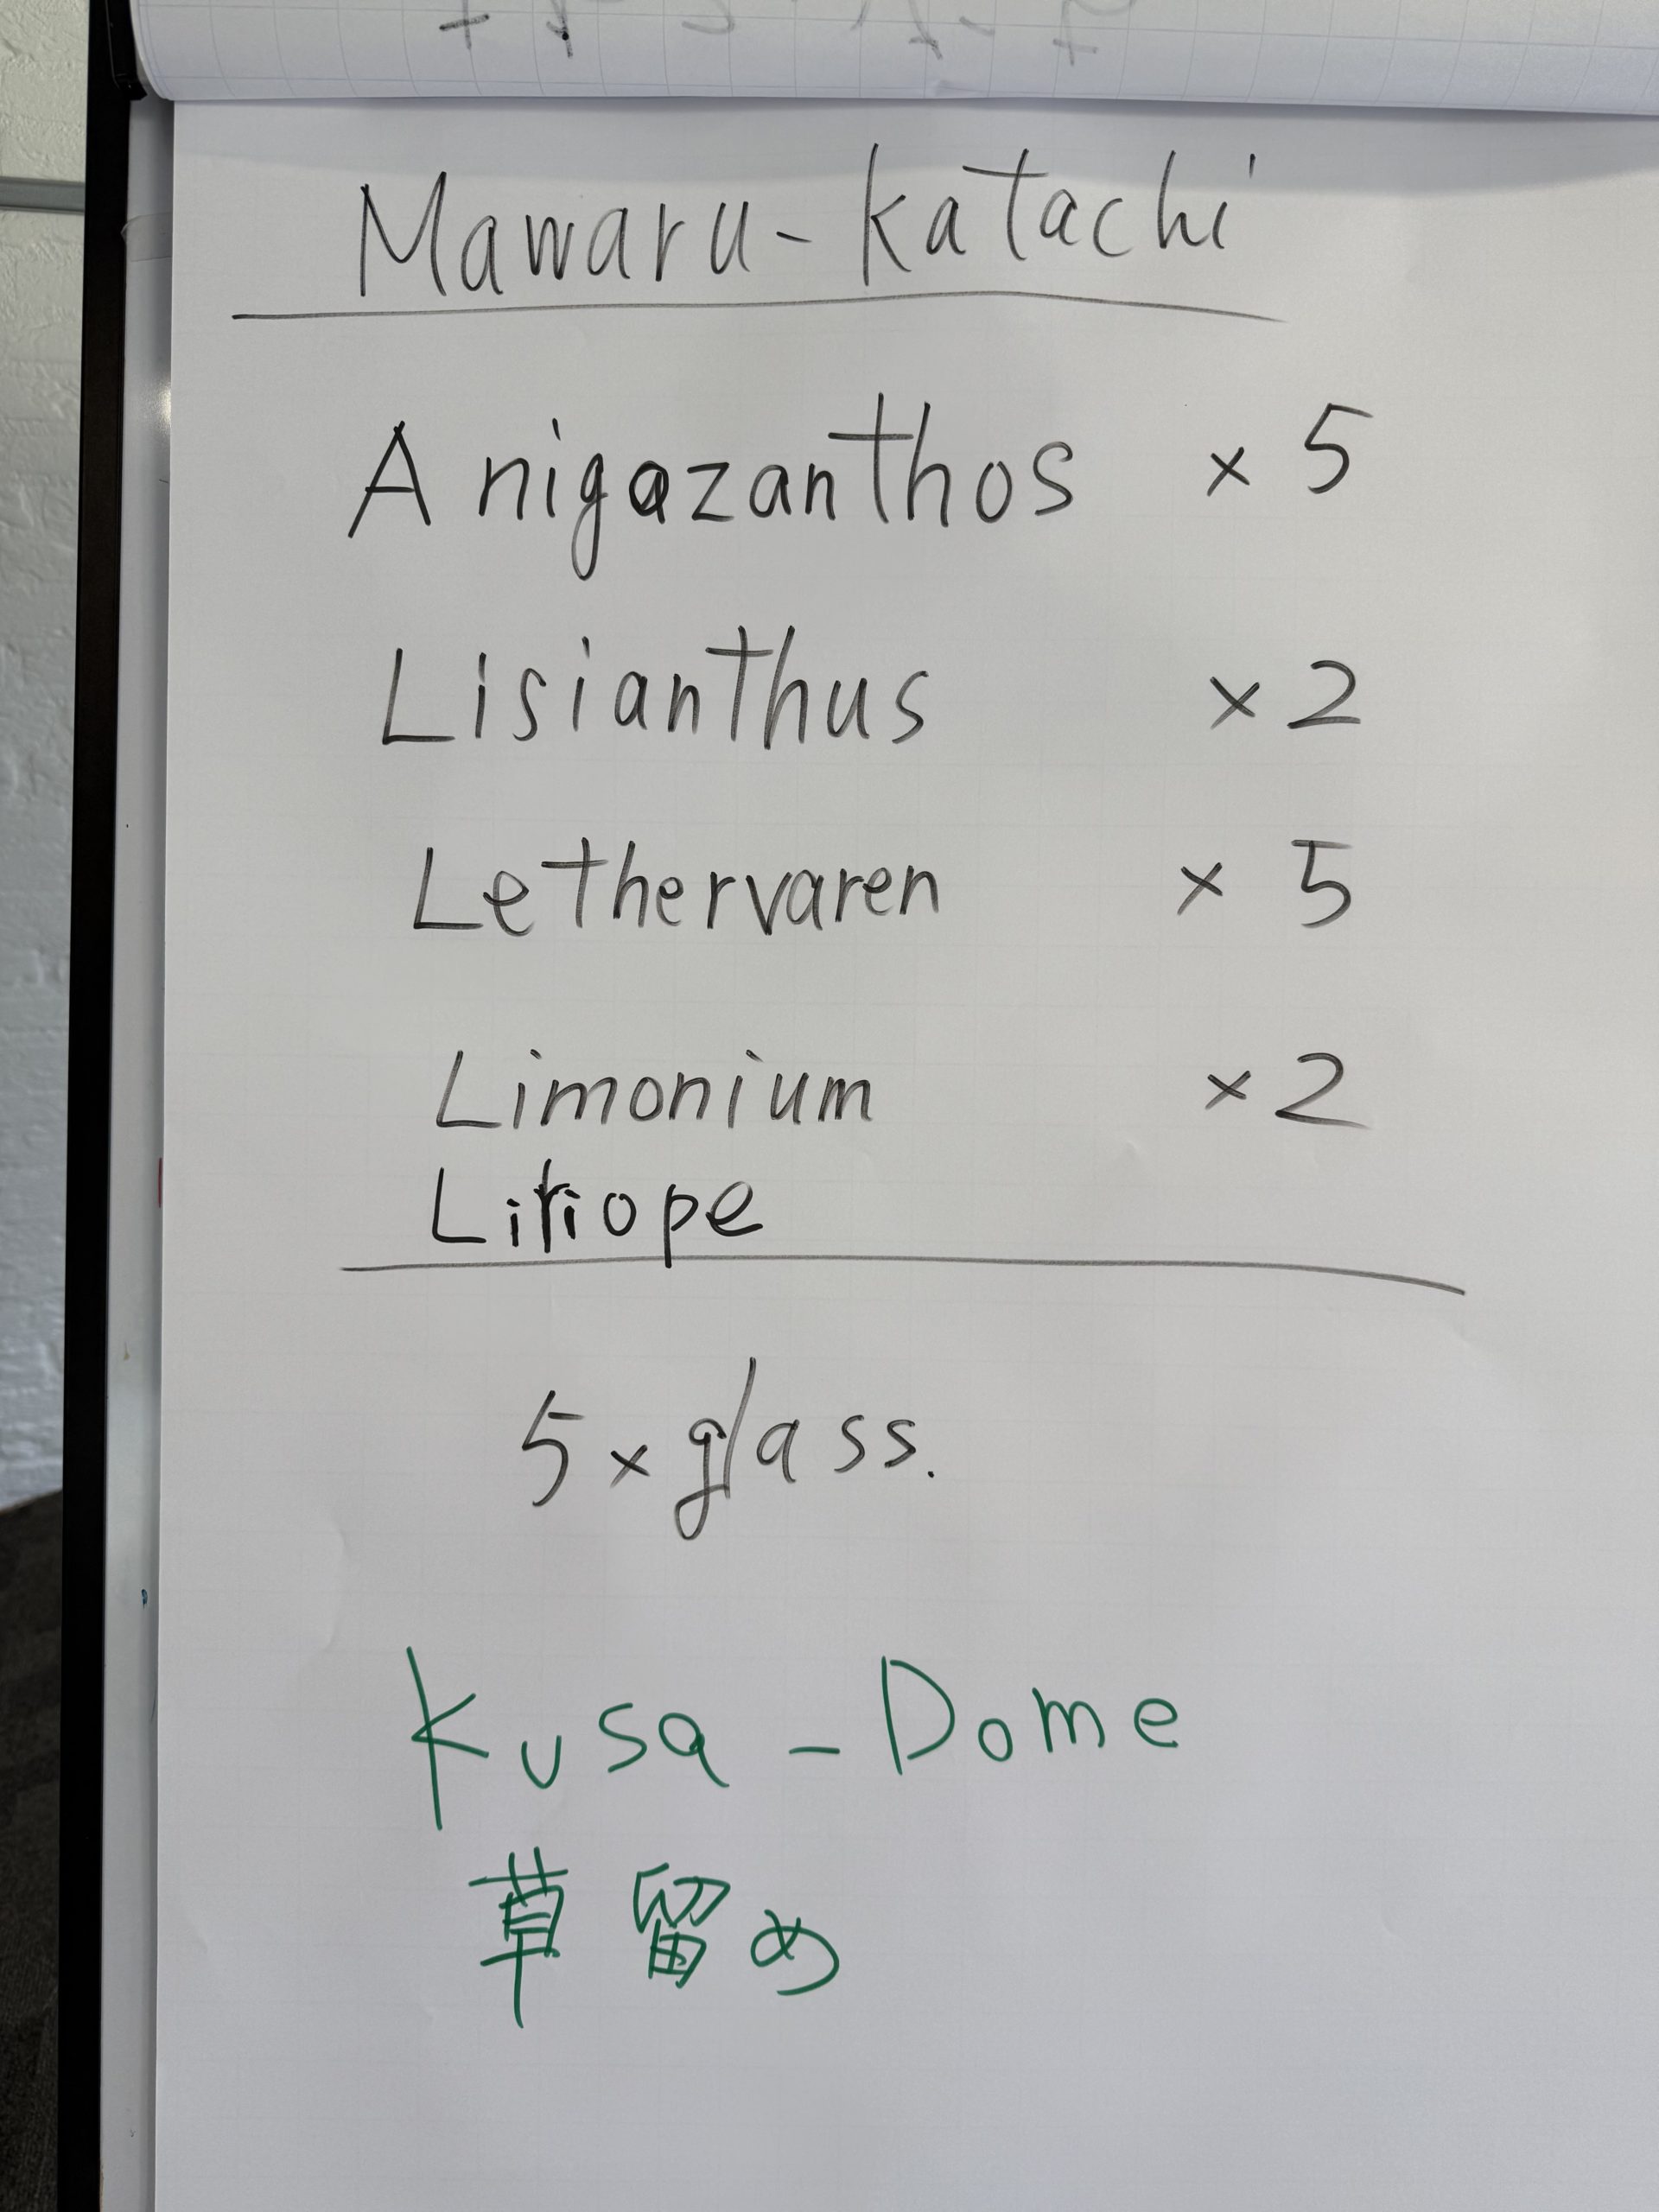 Mawaru-katachi
Anigozanthos × 5
Lisianthus × 2
Lethervaren × 5
Limonium × 2
Liriope
5 × glass.
Kusa - Dome
草留め